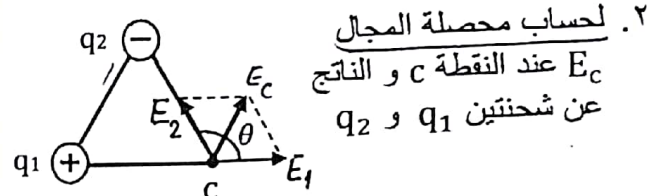 ٢. لحساب محصلة المجال
E_C عند النقطة c و الناتج
عن شحنتين q₁ و q₂
q₂
−
E_C
E₂
θ
q₁
+
c
E₁